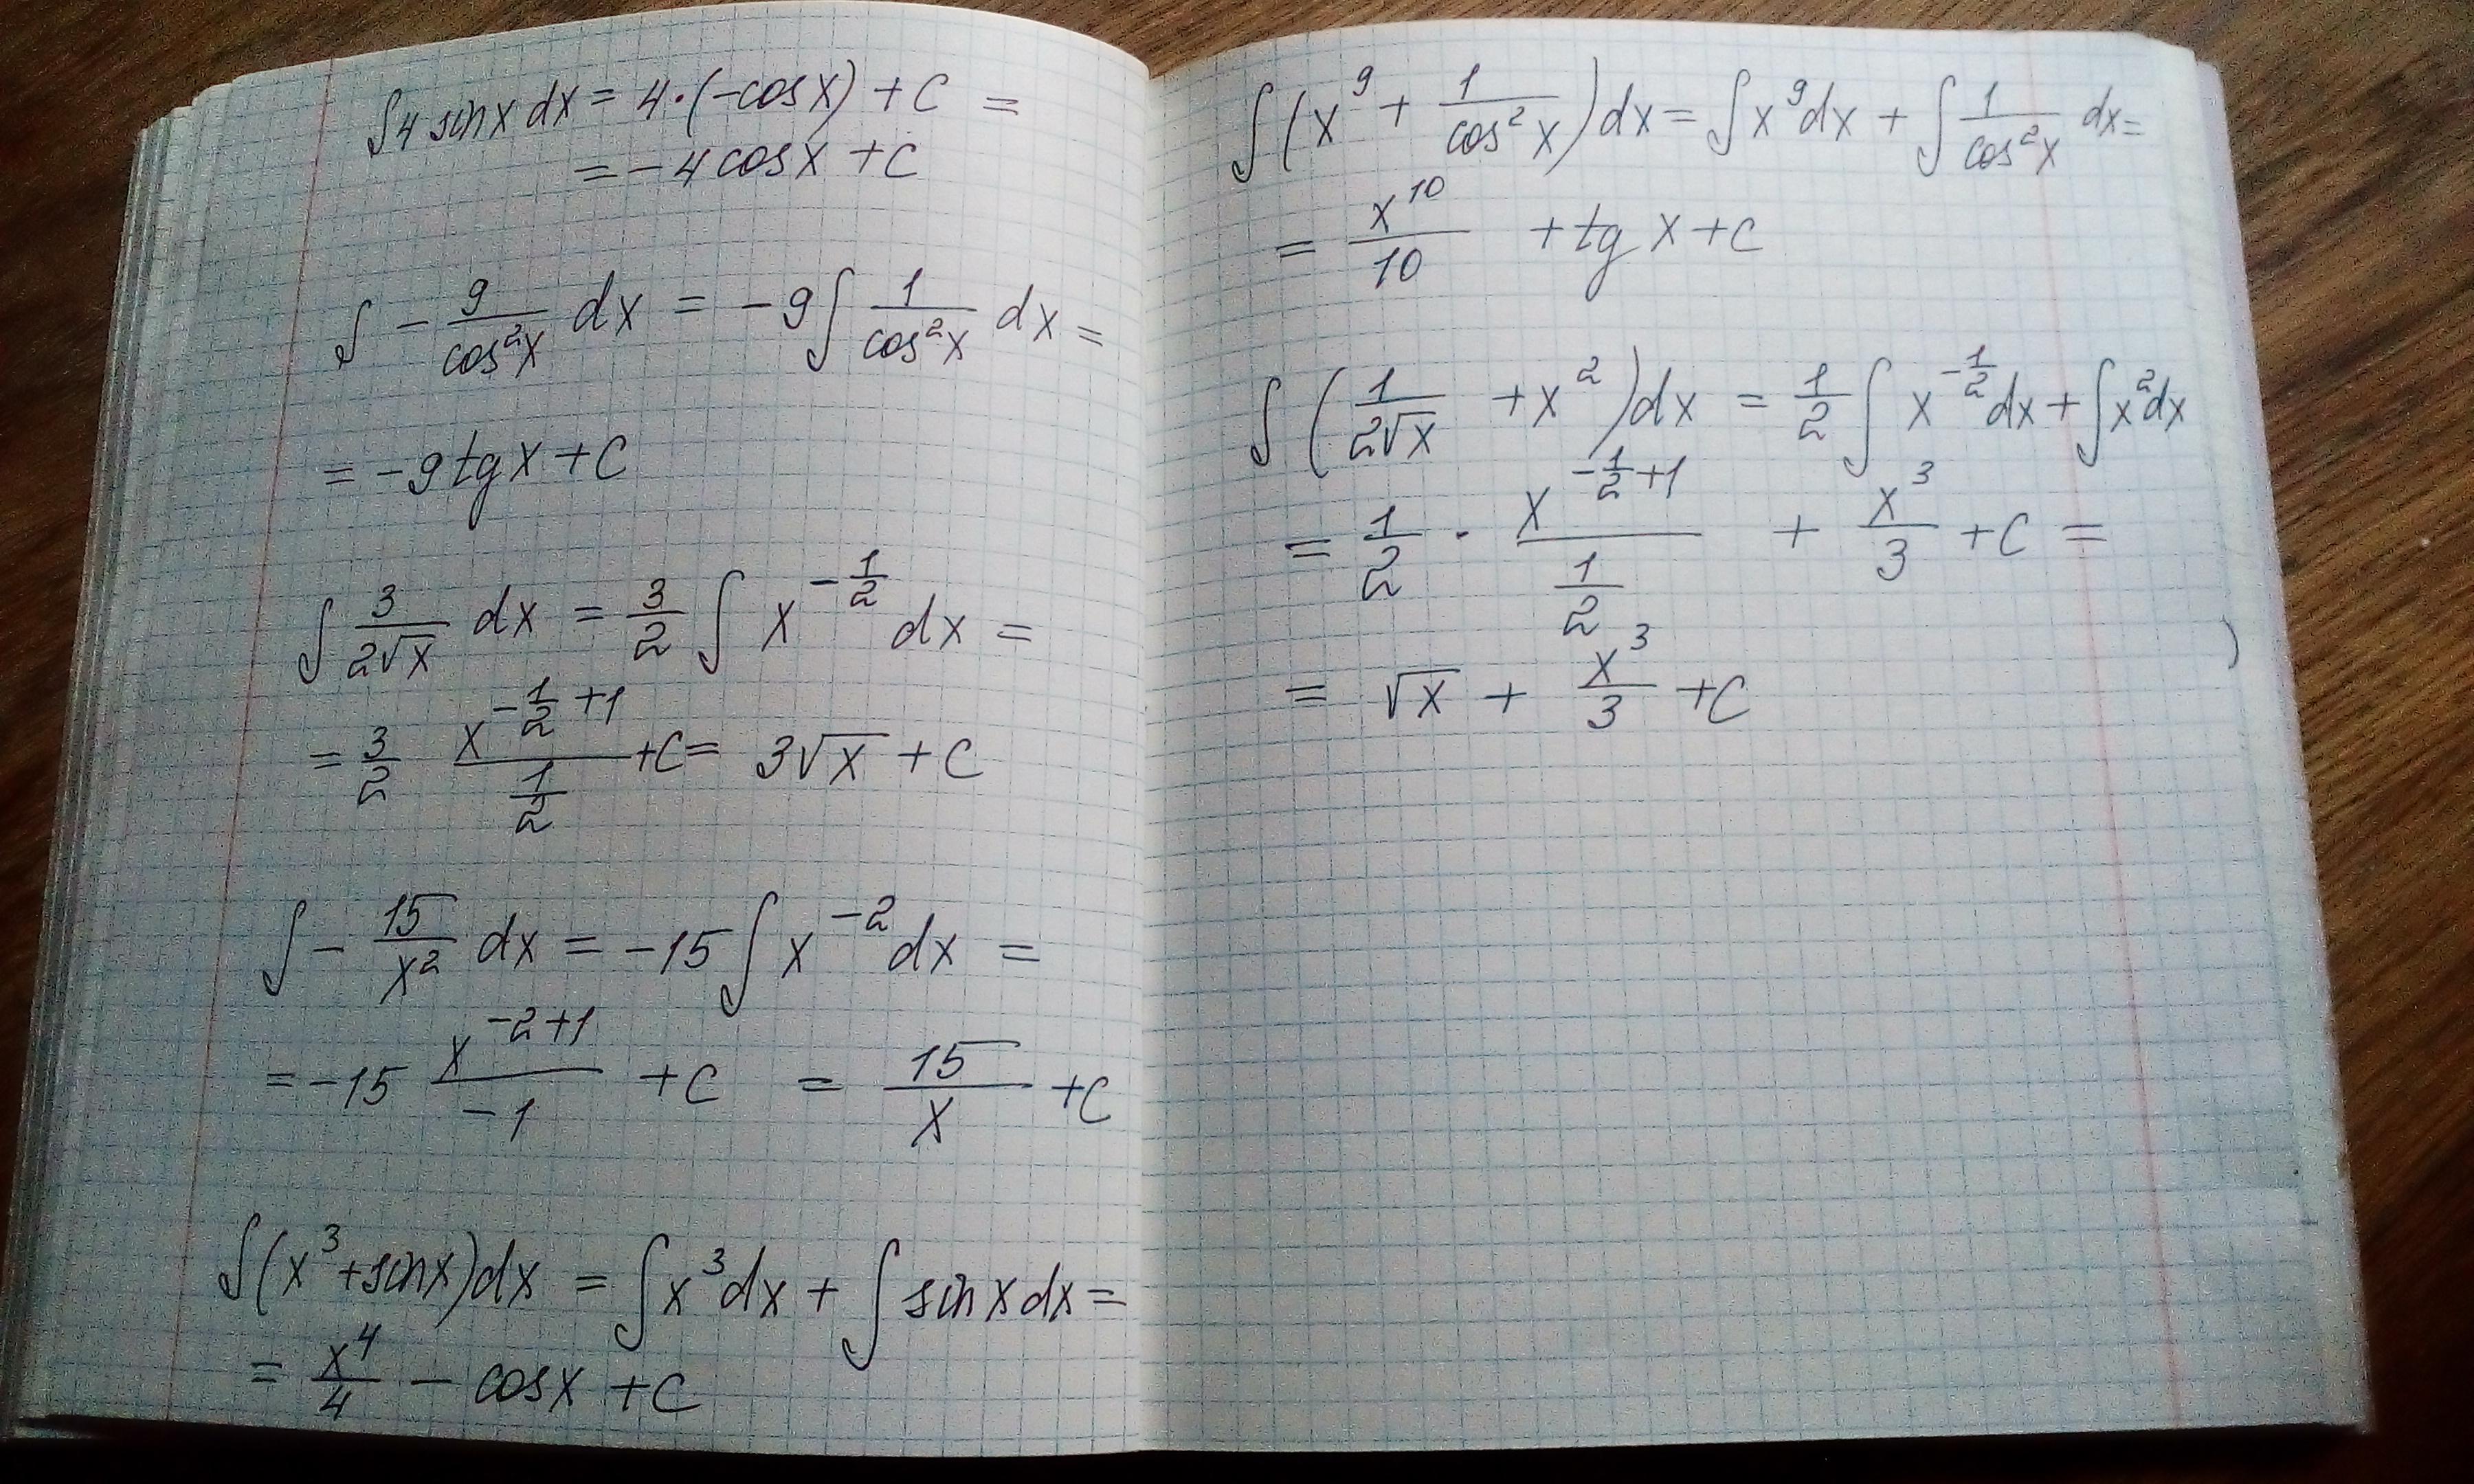 ∫4 sinx dx = 4·(-cosx) + C =
= -4 cosx + C
∫ - 9/cos²x dx = -9∫ 1/cos²x dx =
= -9 tg x + C
∫ 3/(2√x) dx = 3/2 ∫ x^(-1/2) dx =
= 3/2 x^(-1/2+1)/(1/2) + C = 3√x + C
∫ - 15/x² dx = -15 ∫ x^(-2) dx =
= -15 x^(-2+1)/(-1) + C = 15/x + C
∫(x³ + sinx)dx = ∫x³dx + ∫sinx dx =
= x⁴/4 - cosx + C
∫(x⁹ + 1/cos²x)dx = ∫x⁹dx + ∫ 1/cos²x dx =
= x¹⁰/10 + tg x + C
∫(1/(2√x) + x²)dx = 1/2 ∫ x^(-1/2) dx + ∫x²dx
= 1/2 · x^(-1/2+1)/(1/2) + x³/3 + C =
= √x + x³/3 + C